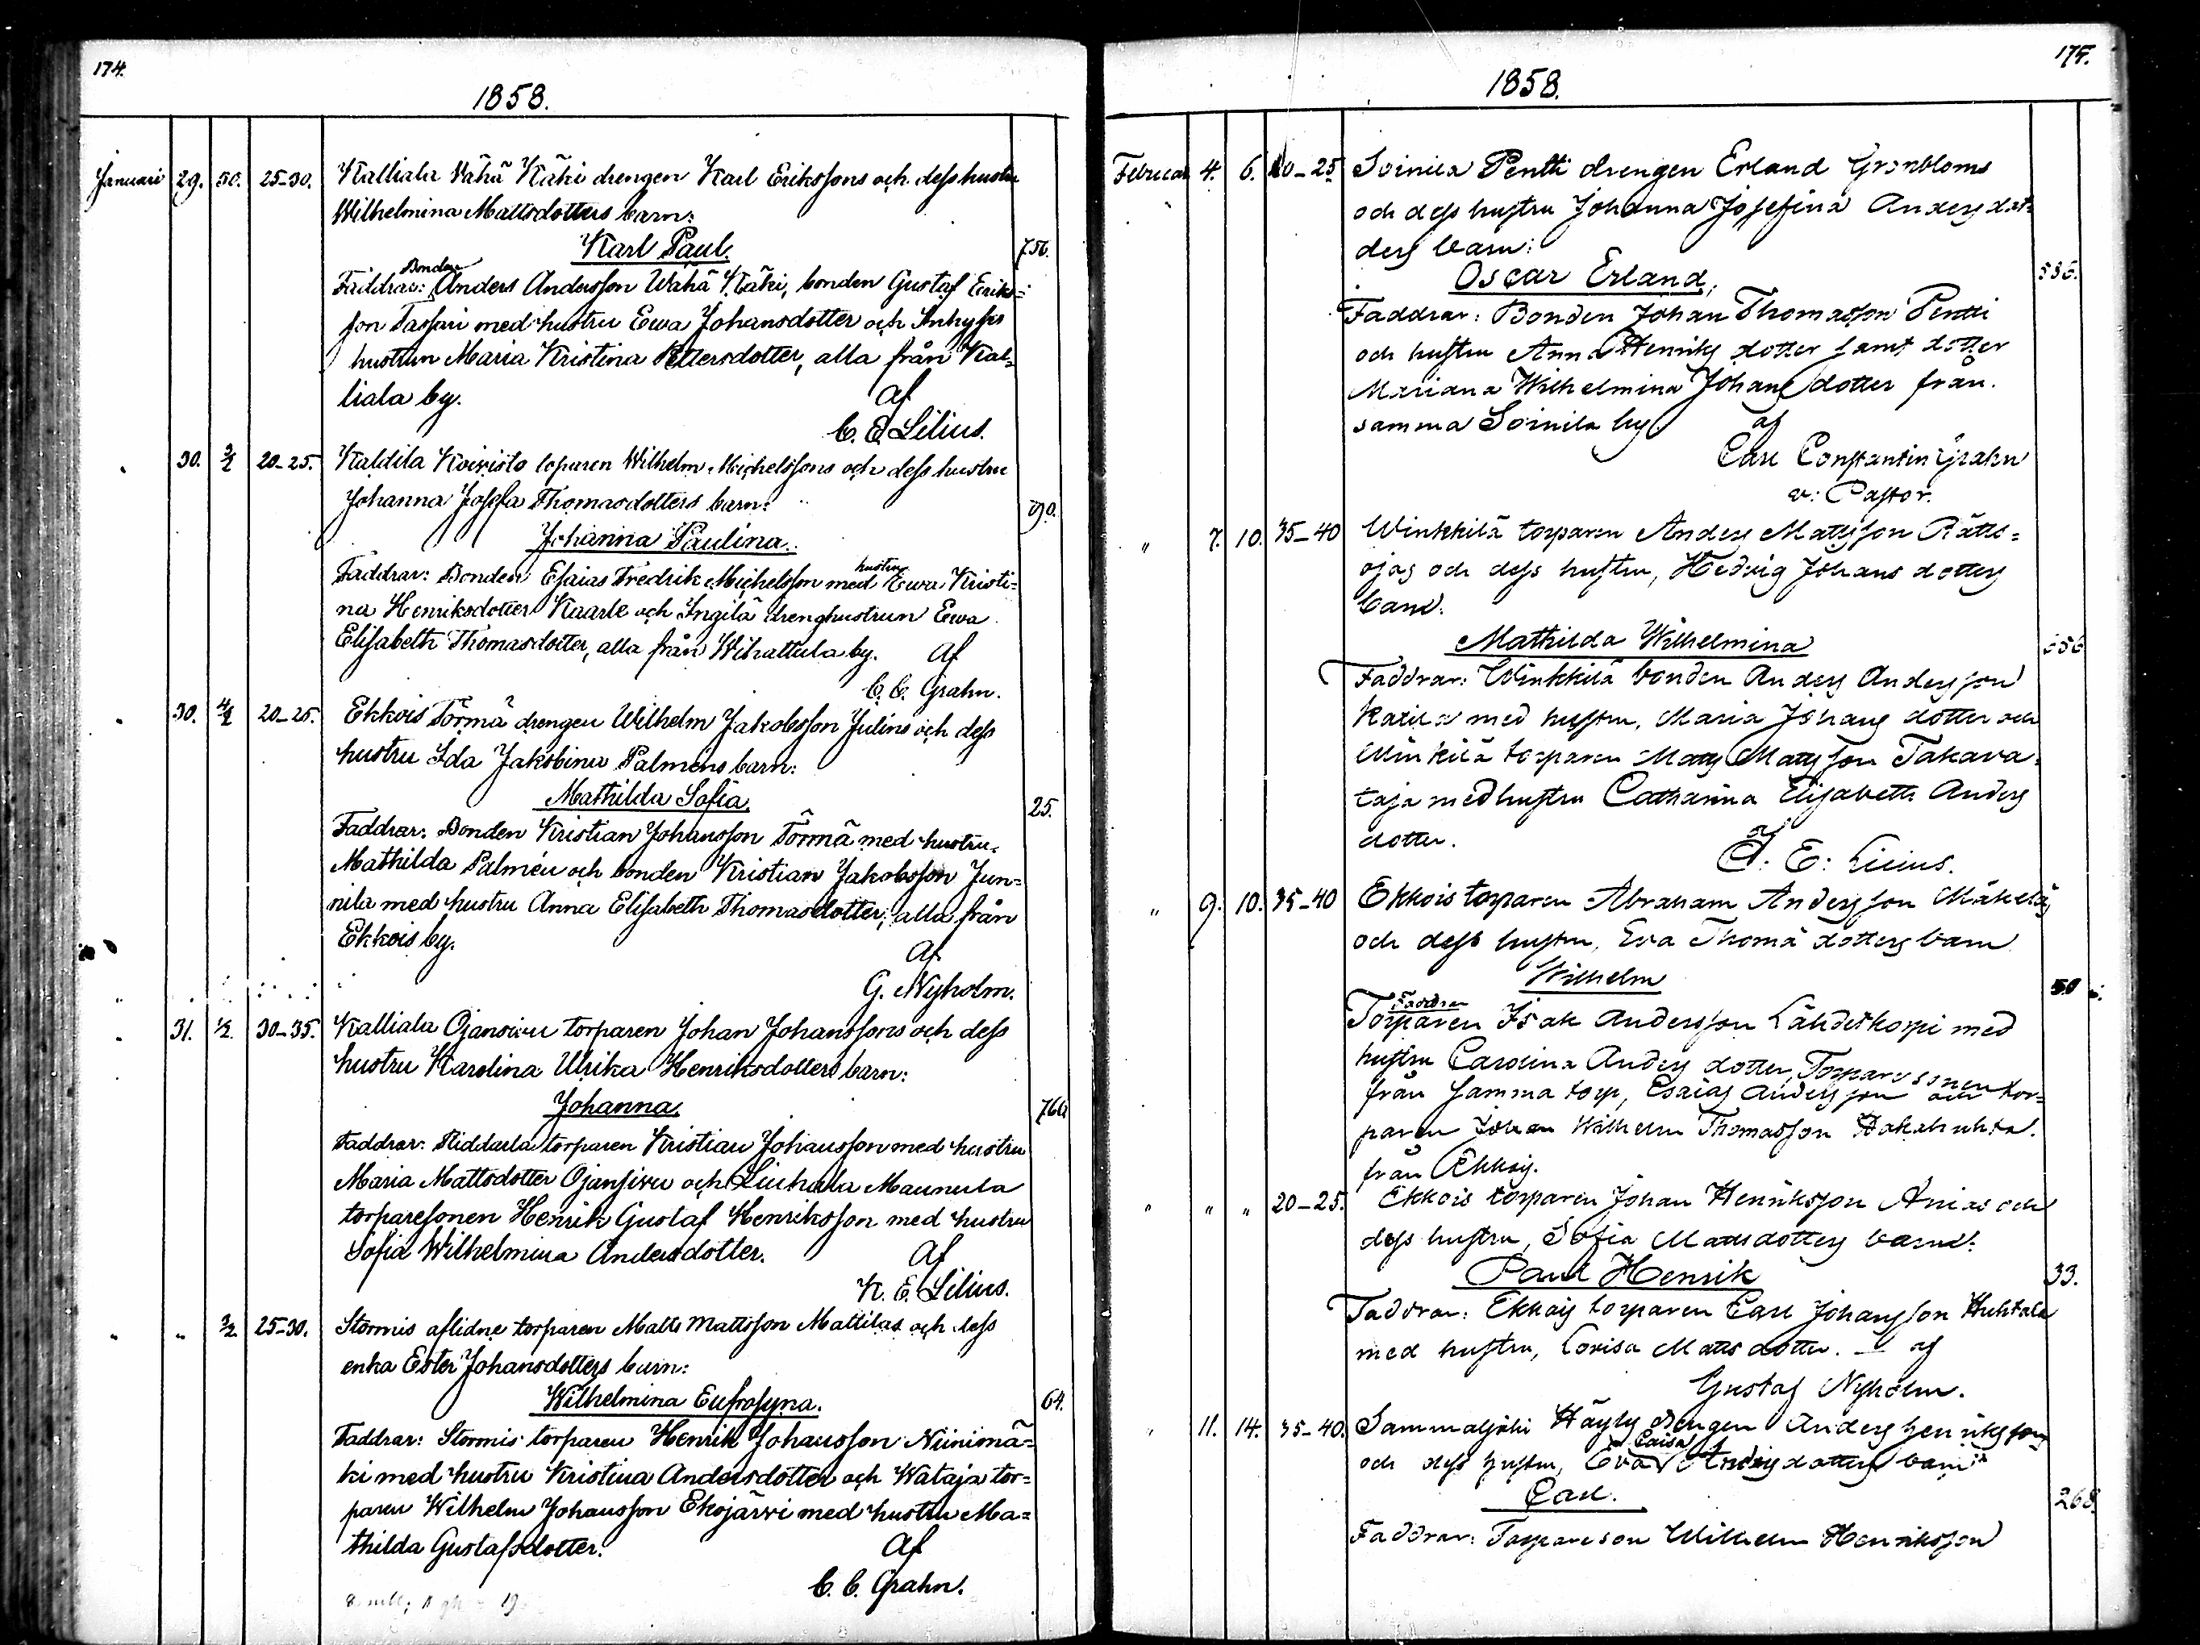 174.
1858.
Januari 29. 30. 25-30. Kalliala Vähä Käki drengen Karl Erikssons och dess hustru
Wilhelmina Mattsdotters barn:
Karl Paul.
756.
Bonden
Faddrar: Anders Andersson Wähä Käki, bonden Gustaf Eriks-
son Tassari med hustru Ewa Johansdotter och Inhyses
hustrun Maria Kristina Pettersdotter, alla från Kal-
liala by. Af
C. E. Lilius.
30. 3/2 20-25. Kaldila Koivisto toparen Wilhelm Michelssons och dess hustru
Johanna Josefa Thomasdotters barn:
90.
Johanna Paulina.
hustru
Faddrar: Bonden Esaias Fredrik Michelsson med Ewa Kristi-
na Henriksdotter Kaarle och Ingilä drenghustrun Ewa
Elisabeth Thomasdotter, alla från Wihattula by. Af
C. C. Grahn.
30. 4/2 20-25. Ekkois Törmä drengen Wilhelm Jakobsson Julins och dess
hustru Ida Jakobina Palmens barn:
Mathilda Sofia.
25.
Faddrar: Bonden Kristian Johansson Törmä med hustru
Mathilda Palmén och bonden Kristian Jakobsson Jun-
nila med hustru Anna Elisabeth Thomasdotter, alla från
Ekkois by. Af
G. Nyholm.
31. 1/2. 30-35. Kalliala Ojansivu torparen Johan Johanssons och dess
hustru Karolina Ulrika Henriksdotters barn:
Johanna.
766
Faddrar: Riddarla torparen Kristian Johansson med hustru
Maria Mattsdotter Ojansivu och Liuhala Maunula
torparesonen Henrik Gustaf Henriksson med hustru
Sofia Wilhelmina Andersdotter. Af
K. E. Lilius.
" " 3/2 25-30. Stormis aflidne torparen Matts Mattsson Mattilas och dess
enka Ester Johansdotters barn:
Wilhelmina Eufrosyna.
64.
Faddrar: Stormis torparen Henrik Johansson Niinimä-
ki med hustru Kristina Andersdotter och Wataja tor-
paren Wilhelm Johansson Ekojärvi med hustru Ma-
thilda Gustafsdotter. Af
C. C. Grahn.
175.
1858.
Februari 4. 6. 20-25 Soinila Pentti drengen Erland Grönbloms
och dess hustru Johanna Josefina Anders dot-
ders barn:
Oscar Erland,
536.
Faddrar: Bonden Johan Thomasson Pentti
och hustru Anna Henriks dotter samt dotter
Mariana Wilhelmina Johans dotter från
samma Soinila by af
Carl Constantin Grahn
v: Pastor.
" 7. 10. 35-40 Winkkilä torparen Anders Mattsson Rätts-
ojas och dess hustru, Hedvig Johans dotters
barn.
Mathilda Wilhelmina
556
Faddrar: Winkkilä bonden Anders Andersson
Katila med hustru, Maria Johans dotter och
Winkilä torparen Matts Mattsson Takava-
taja med hustru Catharina Elisabeth Anders
dotter. af
C. E: Lilius.
" 9. 10. 35-40 Ekkois torparen Abraham Andersson Mäkeläs
och dess hustru, Eva Thomä dotters barn
Wilhelm
50
Faddrar
Torparen Isak Andersson Lähdekorpi med
hustru Carolina Anders dotter, Torparesonen
från samma torp, Esaias Andersson och tor-
paren Johan Wilhelm Thomasson Hakahuhta.
från Ekkois.
" " " 20-25. Ekkois torparen Johan Henriksson Anias och
dess hustru, Sofia Mattsdotters barn:
Paul Henrik
33.
Faddrar: Ekkois torparen Carl Johansson Huhtala
med hustru, Lovisa Matts dotter. — af
Gustaf Nyholm.
" 11. 14. 35-40. Sammaljoki Häyly drengen Anders Henrikssons
Caisa
och dess hustru, Eva Andersdotters barn
Carl.
268.
Faddrar: Torpareson Wilhelm Henriksson